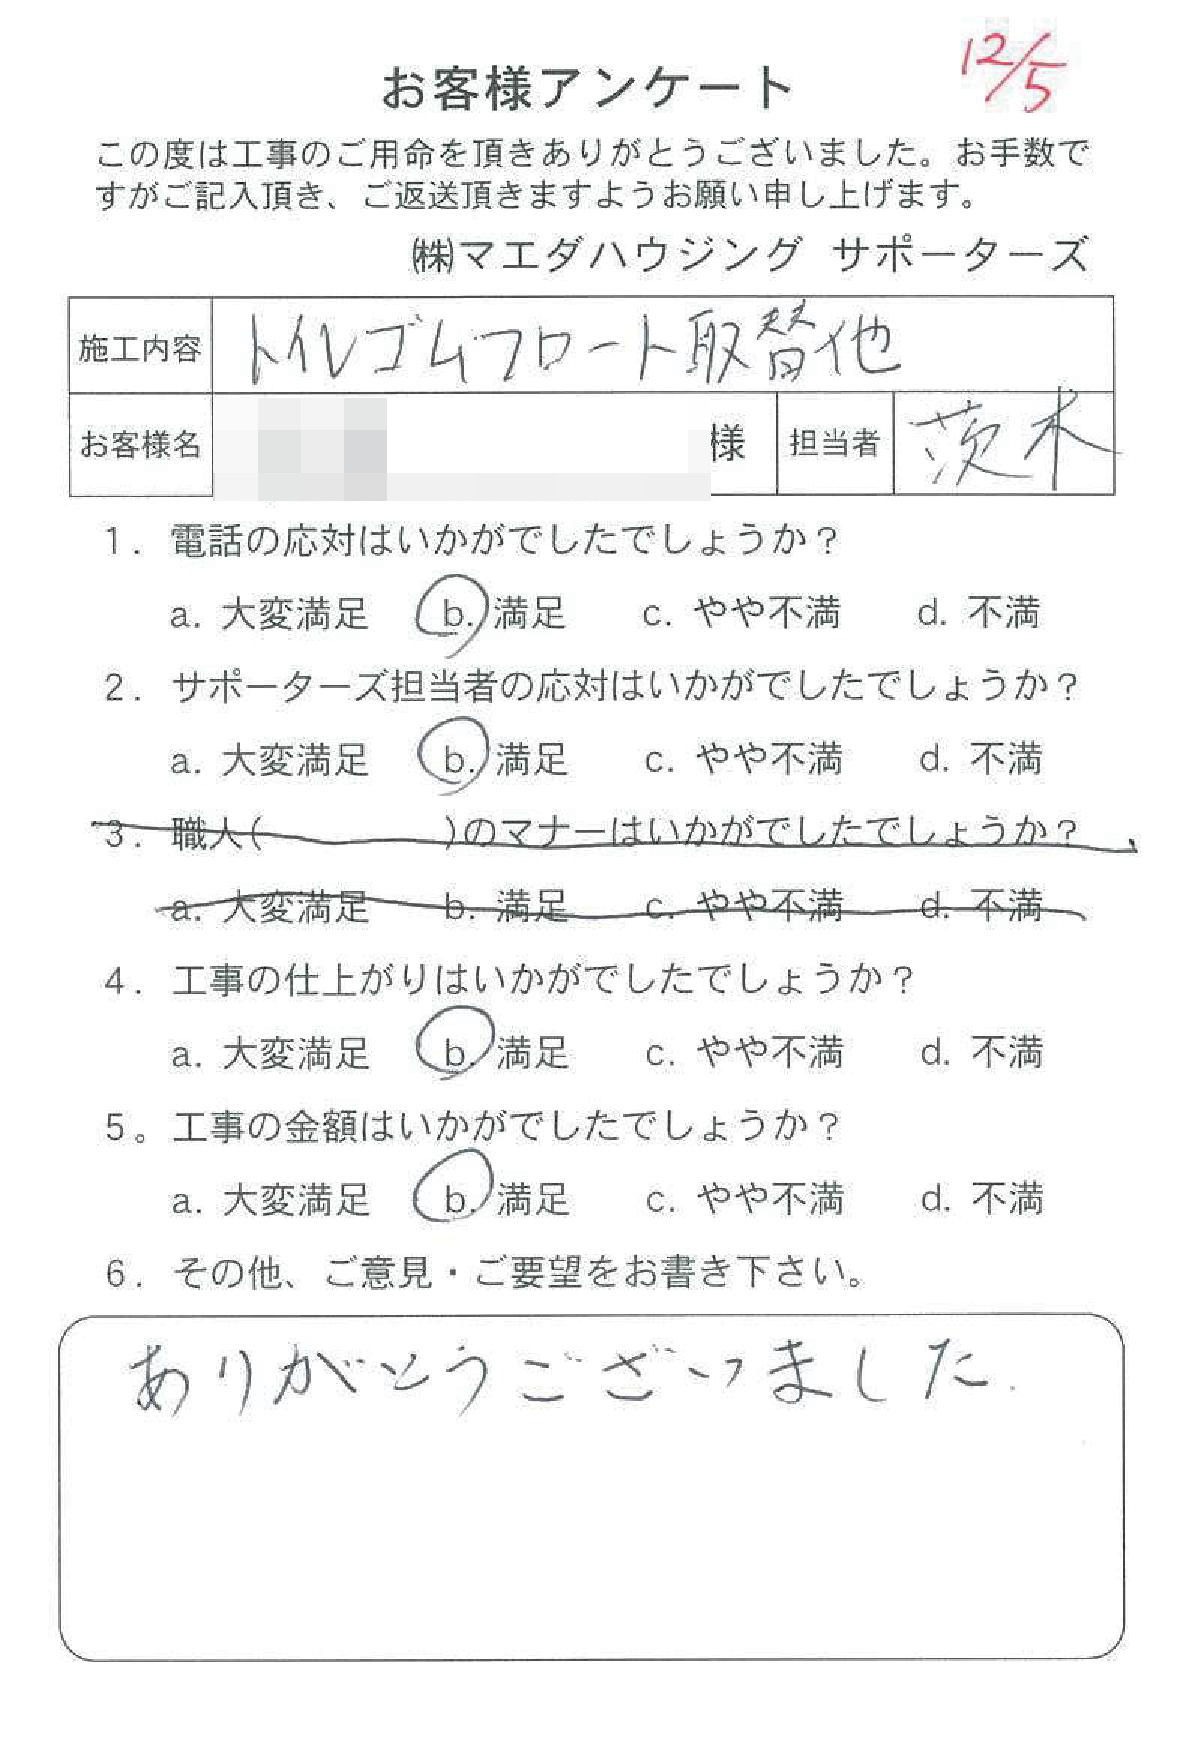 12/5
お客様アンケート
この度は工事のご用命を頂きありがとうございました。お手数で
すがご記入頂き、ご返送頂きますようお願い申し上げます。
㈱マエダハウジング サポーターズ
施工内容 トイレゴムフロート取替他
お客様名 様 担当者 茨木
1. 電話の応対はいかがでしたでしょうか？
a. 大変満足 b. 満足 c. やや不満 d. 不満
2. サポーターズ担当者の応対はいかがでしたでしょうか？
a. 大変満足 b. 満足 c. やや不満 d. 不満
3. 職人( )のマナーはいかがでしたでしょうか？
a. 大変満足 b. 満足 c. やや不満 d. 不満
4. 工事の仕上がりはいかがでしたでしょうか？
a. 大変満足 b. 満足 c. やや不満 d. 不満
5。工事の金額はいかがでしたでしょうか？
a. 大変満足 b. 満足 c. やや不満 d. 不満
6. その他、ご意見・ご要望をお書き下さい。
ありがとうございました.